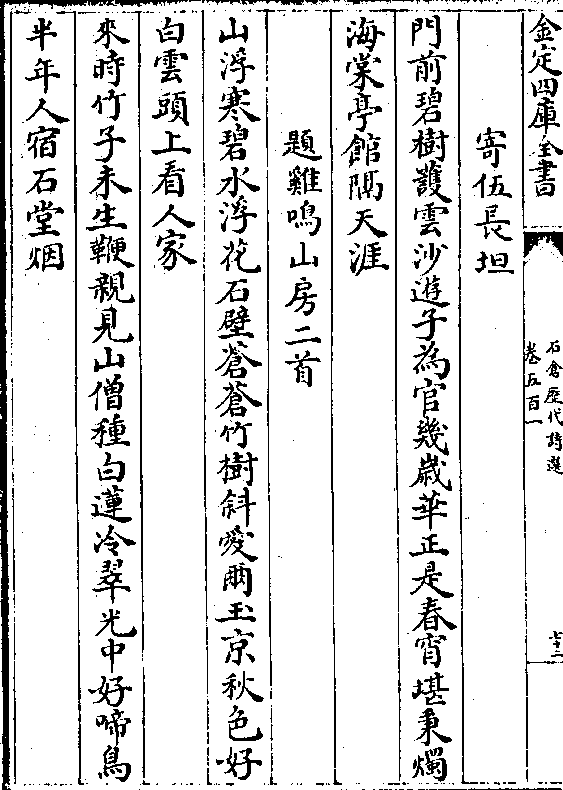 欽定四庫全書
石倉歷代詩選
卷五百一
七十二
寄伍長坦
門前碧樹護雲沙遊子為官幾歲華正是春宵堪秉燭
海棠亭館隔天涯
題雞鳴山房二首
山浮寒碧水浮花石壁蒼蒼竹樹斜愛爾玉京秋色好
白雲頭上看人家
來時竹子未生鞭親見山僧種白蓮冷翠光中好啼鳥
半年人宿石堂烟